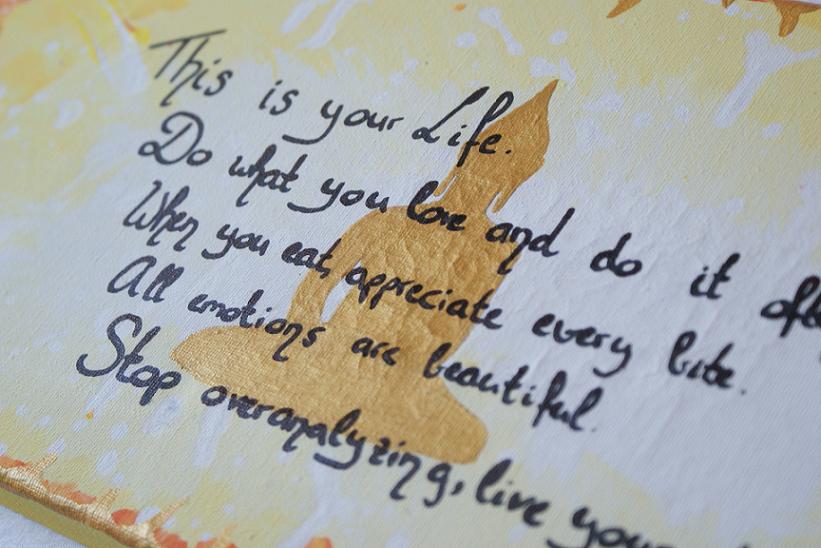 This is your Life.
Do what you love and do it
When you eat, appreciate every bite.
All emotions are beautiful.
Stop overanalyzing, live